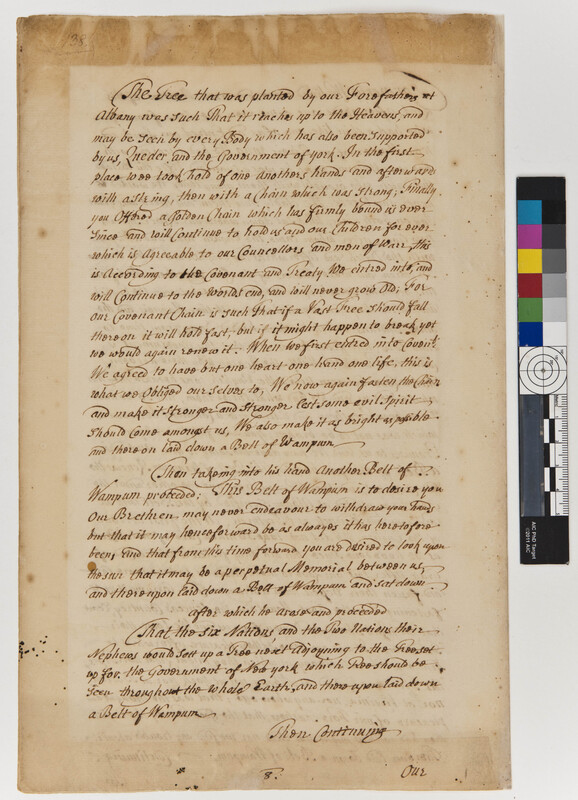 138
The Tree that was planted by our Forefathers at
Albany was such That it reaches up to the Heavens, and
may be seen by every Body which has also been supported
by us, Queder, and the Government of york. In the first
place wee took hold of one anothers hands and afterwards
with a string, then with a Chain which was strong; Finally
you Offered a Golden Chain which has firmly bound us ever
since and will Continue to hold us and our Children for ever
which is Agreeable to our Councellors and men of Warr, this
is According to the Covenant and Treaty We entred into, and
will Continue to the Worlds end, and will never grow Old; For
our Covenant Chain is such that if a Vast Tree should fall
there on it will hold fast, but if it might happen to break yet
we would again renew it. When we first entred into Covent.
We agreed to have but one heart one hand one life, this is
what we obliged our selves to, We now again fasten the Chain
and make it Stronger and Stronger lest some evil Spirit
should come amongst us, We also make it as bright as possible
and there on laid down a Belt of Wampum
Then taking into his hand Another Belt of
Wampum proceeded; This Belt of Wampum is to desire you
Our Brethren may never endeavour to withdraw your hands
but that it may henceforward be as alwayes it has heretofore
been, And that from this time forward you are desired to look upon
the sun that it may be a perpetual Memorial between us,
and thereupon laid down a Belt of Wampum and sat down
after which he arose and proceeded
That the six Nations, and the Two Nations their
Nephews would sett up a Tree next Adjoyning to the Tree set
up for the Government of New york which Tree should be
seen throughout the whole Earth, and there upon laid down
a Belt of Wampum
Then Continuing
8.
Our
AIC PhD Target
©2011 AIC